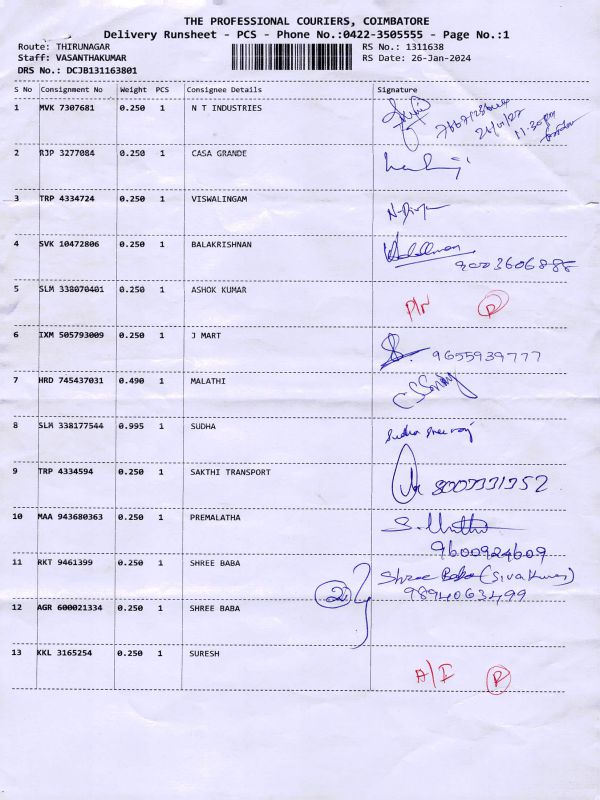 THE PROFESSIONAL COURIERS, COIMBATORE
Delivery Runsheet - PCS - Phone No.:0422-3505555 - Page No.:1
Route: THIRUNAGAR RS No.: 1311638
Staff: VASANTHAKUMAR RS Date: 26-Jan-2024
DRS No.: DCJB131163801
S No Consignment No Weight PCS Consignee Details Signature
1 MVK 7307681 0.250 1 N T INDUSTRIES
11.30pm
2 RJP 3277084 0.250 1 CASA GRANDE
3 TRP 4334724 0.250 1 VISWALINGAM
4 SVK 10472806 0.250 1 BALAKRISHNAN
9003606886
5 SLM 338070401 0.250 1 ASHOK KUMAR
P/N P
6 IXM 505793009 0.250 1 J MART
9655939777
7 HRD 745437031 0.490 1 MALATHI
8 SLM 338177544 0.995 1 SUDHA
9 TRP 4334594 0.250 1 SAKTHI TRANSPORT
10 MAA 943680363 0.250 1 PREMALATHA
9600924609
11 RKT 9461399 0.250 1 SHREE BABA Shree Baba (Sivakumar)
12 AGR 600021334 0.250 1 SHREE BABA 2 9894063499
13 KKL 3165254 0.250 1 SURESH
A/I P